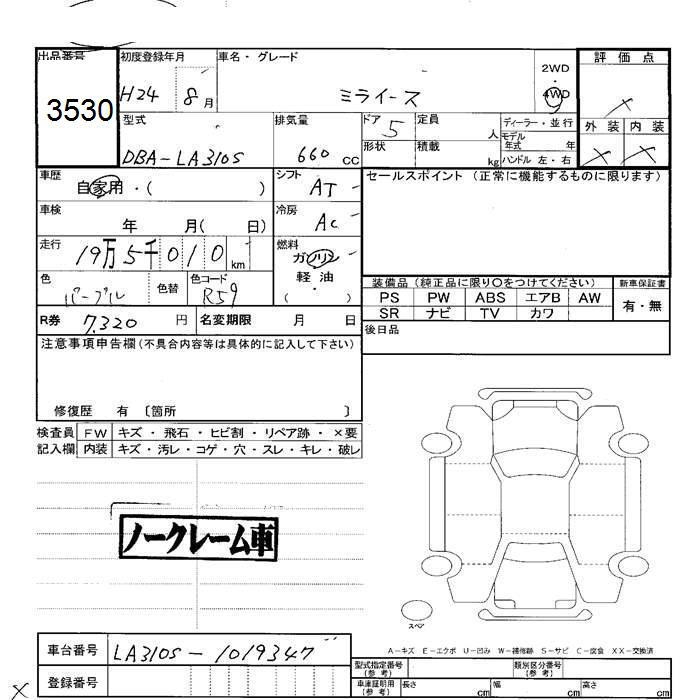 出品番号 初度登録年月 車名・グレード 評価点
3530 H24 8月 ミライース 2WD 4WD ×
型式 排気量 ドア 定員 ディーラー・並行 外装 内装
DBA-LA310S 660 CC 5 人 モデル年式 年 × ×
形状 積載 kg ハンドル 左・右
車歴 自家用・( ) シフト AT セールスポイント (正常に機能するものに限ります)
車検 年 月( 日) 冷房 AC
走行 19万5千010km 燃料 ガソリン
軽油
( )
色 パープル 色替 色コード R59 装備品 (純正品に限り○をつけてください) 新車保証書
PS PW ABS エアB AW 有・無
SR ナビ TV カワ
R券 7,320 円 名変期限 月 日 後日品
注意事項申告欄(不具合内容等は具体的に記入して下さい)
修復歴 有 〔箇所 〕
検査員 FW キズ・飛石・ヒビ割・リペア跡・×要
記入欄 内装 キズ・汚レ・コゲ・穴・スレ・キレ・破レ
ノークレーム車
スペア
A-キズ E-エクボ U-凹み W-補修跡 S-サビ C-腐食 XX-交換済
車台番号 LA310S-1019347 型式指定番号(参考) 類別区分番号(参考)
× 登録番号 車庫証明用(参考) 長さ cm 幅 cm 高さ cm